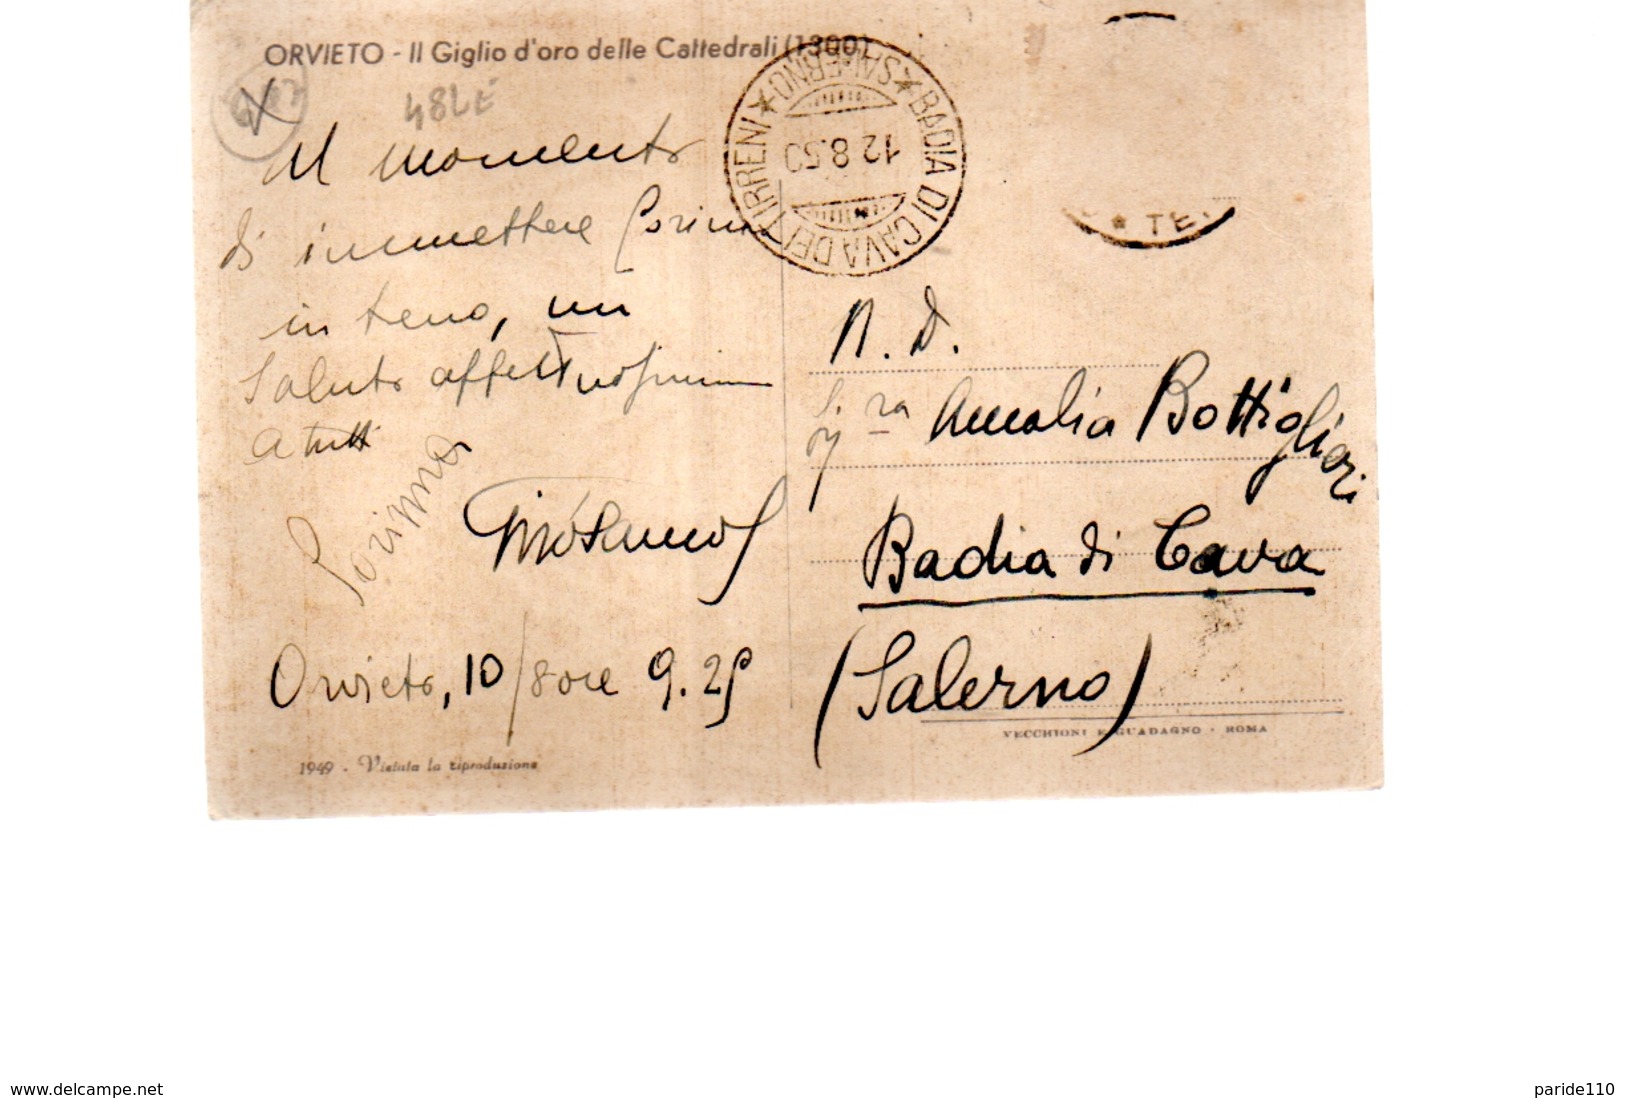 ORVIETO - Il Giglio d'oro delle Cattedrali (1300)
48LE
Al momento
di immettere Corinna
in treno, un
saluto affettuosissimo
a tutti
Corinna
Orvieto, 10/8 ore 9.25
1949 - Vietata la riproduzione
BADIA DI CAVA DEI TIRRENI
(SALERNO)
12.8.50
TE
N. D.
Sig.ra Amalia Bottiglieri
Badia di Cava
(Salerno)
VECCHIONI E GUADAGNO - ROMA
www.delcampe.net
paride110